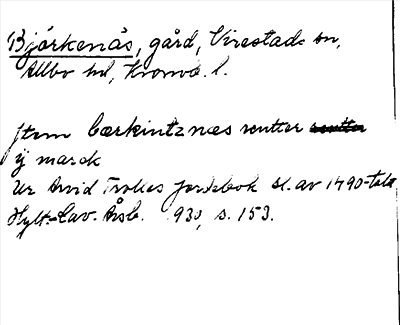 Björkenäs, gård, Virestads sn,
Allbo hd, Kronob. l.
Jtem bærkintznæs rentter rentter
ij marck
Ur Arvid Trolles jordebok sl. av 1490-tale
Hylt.-Cav. Årsb. 1930, s. 153.